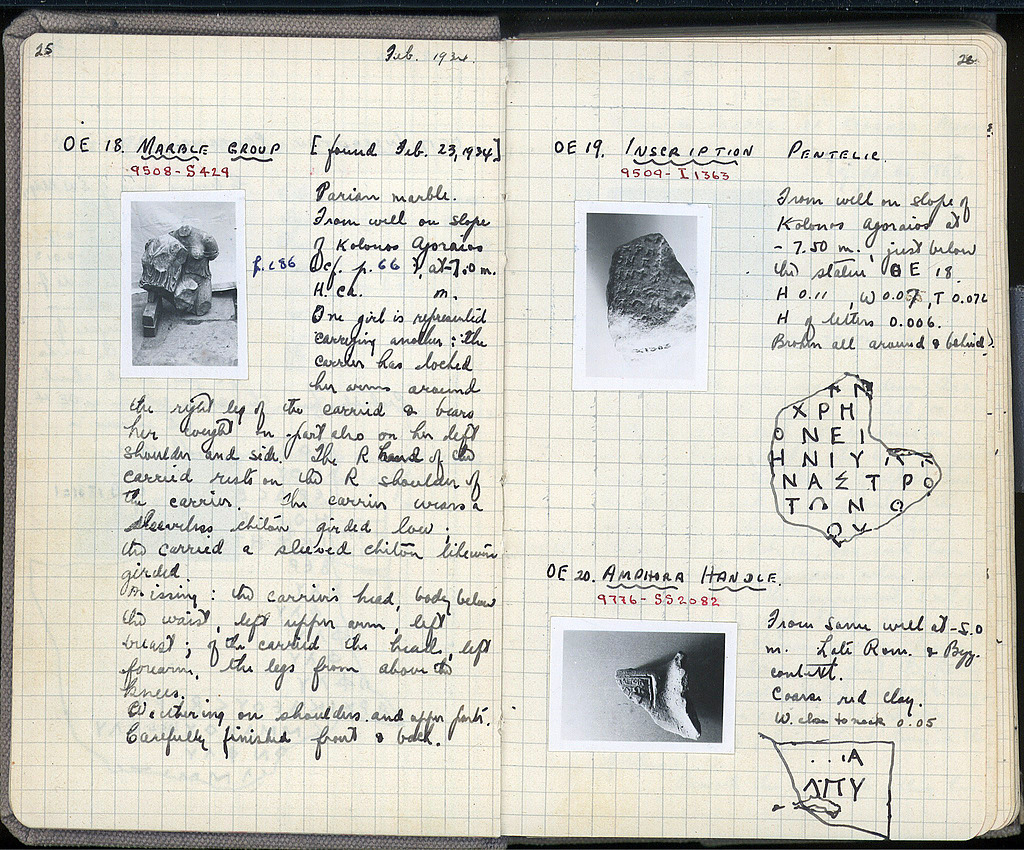 25
Feb. 1934
OE 18. MARBLE GROUP [found Feb. 23, 1934]
9508-S429
Parian marble.
From well on slope
of Kolonos Agoraios
(cf. p. 66), at -7.0 m.
H. ca. m.
One girl is represented
carrying another: the
carrier has locked
her arms around
the right leg of the carried & bears
her weight in part also on her left
shoulder and side. The R hand of the
carried rests on the R shoulder of
the carrier. The carrier wears a
sleeveless chiton girded low;
the carried a sleeved chiton likewise
girded.
Missing: the carrier's head, body below
the waist, left upper arm, left
breast; of the carried the head, left
forearm, the legs from above the
knees.
Weathering on shoulders and upper parts.
Carefully finished front & back.
26
OE 19. INSCRIPTION PENTELIC.
9509-I 1363
From well on slope of
Kolonos Agoraios at
- 7.50 m., just below
the statue OE 18
H 0.11, W 0.07, T 0.072
H of letters 0.006.
Broken all around & behind.
ΧΡΗ
ΟΝΕΙ
ΗΝΙΥ
ΝΑΣΤΡΟ
ΤΩΝ Ο
ΟΥ
OE 20. AMPHORA HANDLE.
9776-SS2082
From same well at -5.0
m. Late Rom. & Byz.
context.
Coarse red clay.
W. close to neck 0.05
...Α
ΛΠΥ